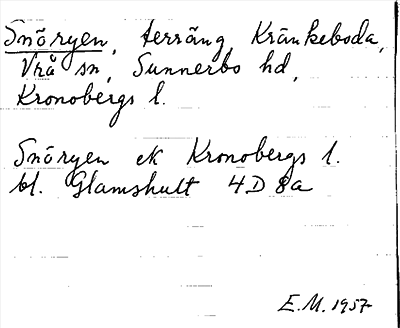 Snöryen, terräng, Kränkeboda,
Vrå sn, Sunnerbo hd,
Kronobergs l.
Snöryen ek Kronobergs l.
bl. Glamshult 4D 8a
E.M. 1957